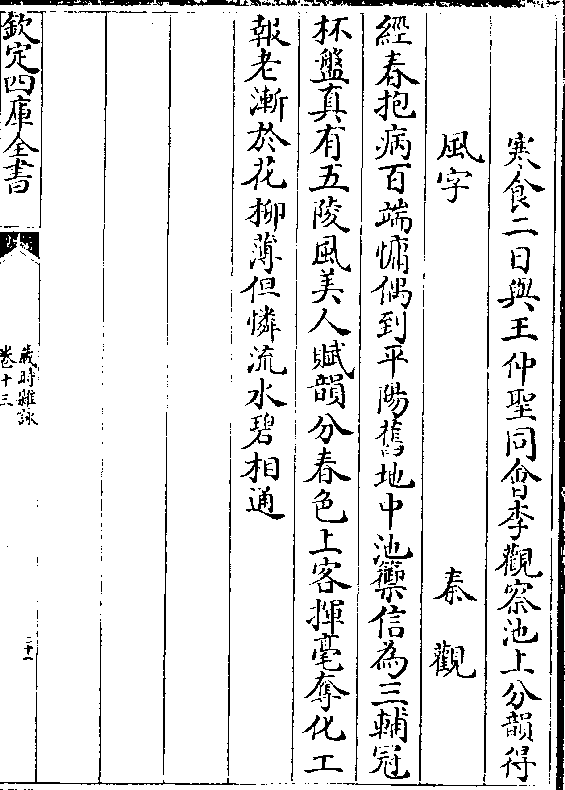 寒食二日與王仲聖同㑹李觀察池上分韻得
風字　秦觀
經春抱病百端慵偶到平陽舊地中池籞信為三輔冠
杯盤真有五陵風美人賦韻分春色上客揮毫奪化工
報老漸於花柳薄但憐流水碧相通
欽定四庫全書
歲時雜詠
卷十三
三十一